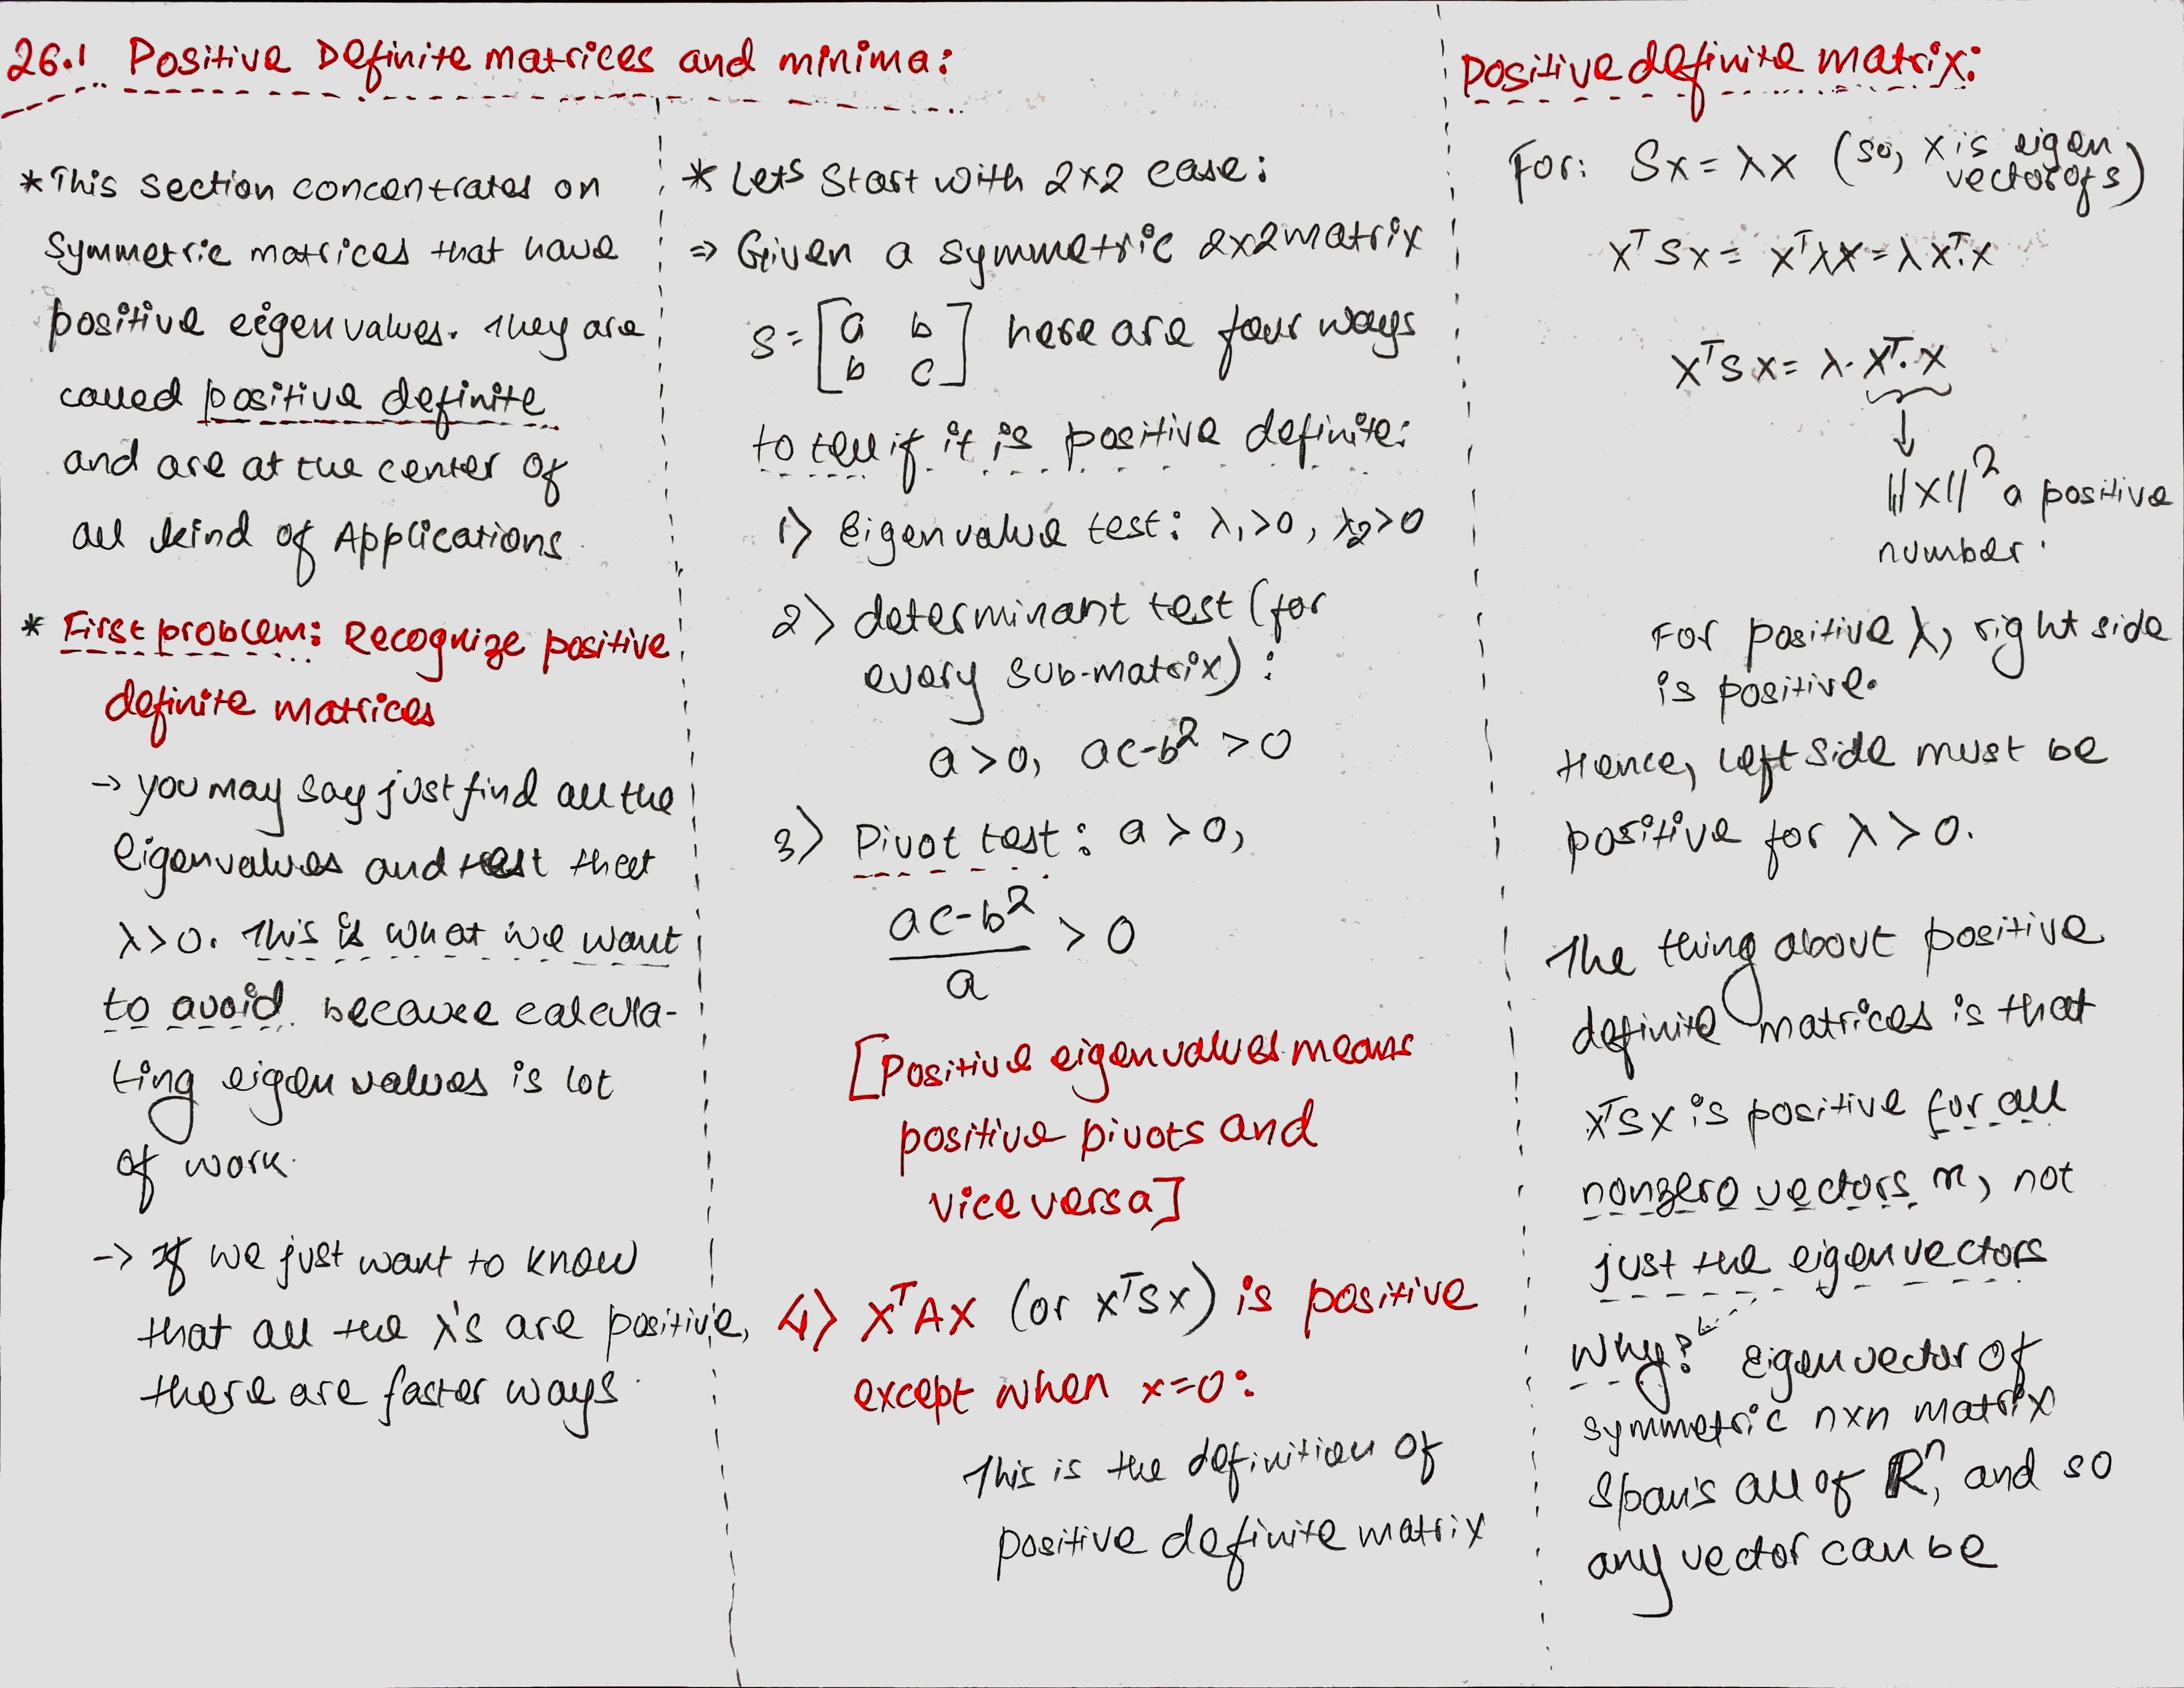 26.1 Positive Definite matrices and minima:
* This section concentrates on
symmetric matrices that have
positive eigenvalues. They are
called positive definite
and are at the center of
all kind of Applications
* First problem: Recognize positive
definite matrices
-> you may say just find all the
eigenvalues and test that
λ>0. This is what we want
to avoid because calcula-
ting eigen values is lot
of work.
-> If we just want to know
that all the λ's are positive,
there are faster ways.
* Lets start with 2x2 case:
=> Given a symmetric 2x2 matrix
S = [a b
b c] here are four ways
to tell if it is positive definite:
1) Eigenvalue test: λ₁>0, λ₂>0
2) determinant test (for
every sub-matrix):
a>0, ac-b² >0
3) Pivot test: a>0,
ac-b²
/ a > 0
[Positive eigenvalues means
positive pivots and
vice versa]
4) XᵀAX (or xᵀSx) is positive
except when x=0:
This is the definition of
positive definite matrix
Positive definite matrix:
For: Sx = λx (so, x is eigen
vector of s)
xᵀSx = xᵀλx = λxᵀ.x
xᵀSx = λ. xᵀ.x
↓
||x||² a positive
number.
For positive λ, right side
is positive.
Hence, left side must be
positive for λ>0.
The thing about positive
definite matrices is that
xᵀSx is positive for all
nonzero vectors x, not
just the eigenvectors
Why? Eigenvector of
symmetric nxn matrix
spans all of ℝⁿ, and so
any vector can be